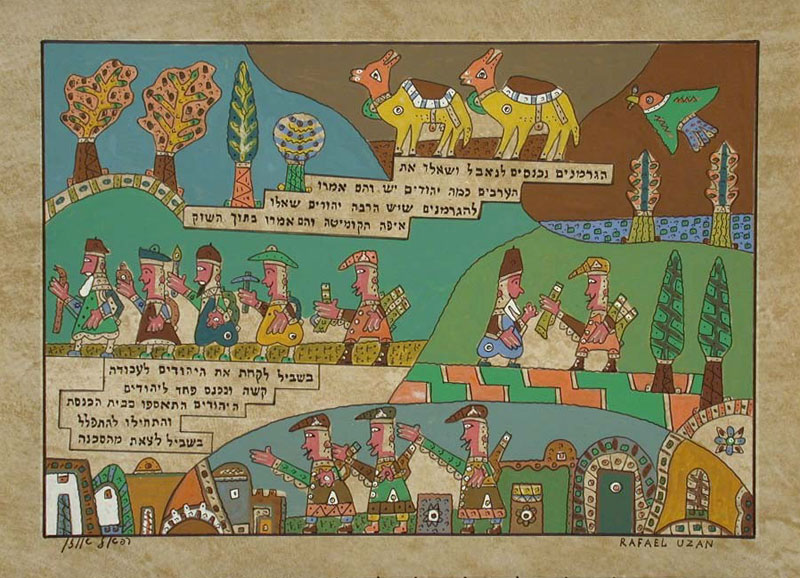 הגרמנים נכנסים לנאבל ושאלו את
הערבים כמה יהודים יש והם אמרו
להגרמנים שיש הרבה יהודים שאלו
איפה הקומיטה והם אמרו בתוך השוק
בשביל לקחת את היהודים לעבודה
קשה ונכנס פחד ליהודים
היהודים התאספו מבית הכנסת
והתחילו להתפלל
בשביל לצאת מהסכנה
רפאל אוזן
RAFAEL UZAN